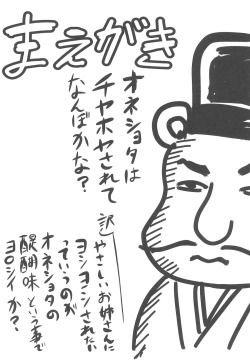 まえがき
オネショタは
チヤホヤされて
なんぼかな?
訳)やさしいお姉さんに
ヨシヨシされたい
っていうのが
オネショタの
醍醐味という事で
ヨロシイか?